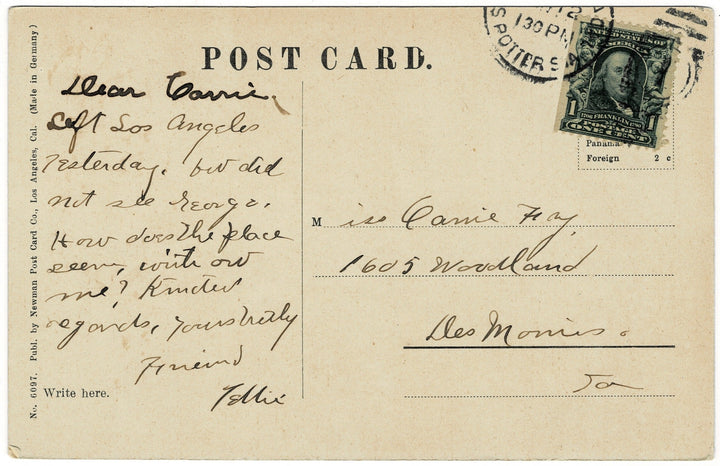 POST CARD.
No. 6097. Publ. by Newman Post Card Co., Los Angeles, Cal. (Made in Germany)
Dear Carrie.
Left Los Angeles
Yesterday. but did
not see George.
How does the place
seem, with out
me? Kindest
regards, yours truly
Friend
Tellie
Write here.
12
130 PM
UNITED STATES OF
AMERICA
1 FRANKLIN 1
POSTAGE
ONE CENT
Panama
Foreign 2 c
Miss Carrie Fay,
1605 Woodland
Des Moines.
Ia